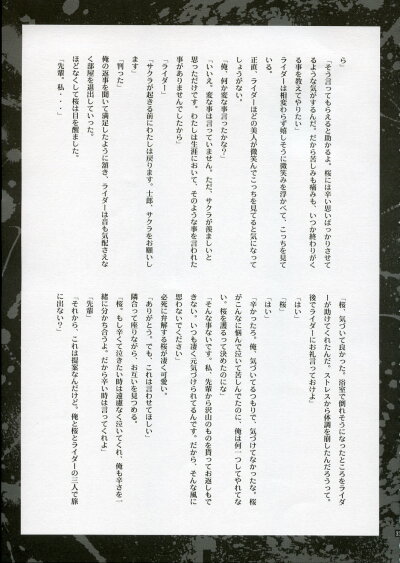 ら」
「そう言ってもらえると助かるよ。桜には辛い思いばっかりさせて
るような気がするんだ。だから苦しみも痛みも、いつか終わりがく
る事を教えてやりたい」
ライダーは相変わらず嬉しそうに微笑みを浮かべて、こっちを見て
いる。
正直、ライダーほどの美人が微笑んでこっちを見てると気になって
しょうがない。
「俺、何か変な事言ったかな?」
「いいえ、変な事は言っていません。ただ、サクラが羨ましいと
思っただけです。わたしは生涯において、そのような事を言われた
事がありませんでしたから」
「ライダー」
「サクラが起きる前にわたしは戻ります。士郎、サクラをお願いし
ます」
「判った」
俺の返事を聞いて満足したように頷き、ライダーは音も気配さえな
く部屋を退出していった。
ほどなくして桜は目を醒ました。
「先輩。私・・・」
「桜、気づいて良かった。浴室で倒れそうになったところをライダ
ーが助けてくれたんだ。ストレスから体調を崩したんだろうって。
後でライダーにお礼言っておけよ」
「はい」
「桜」
「はい」
「辛かったろう。俺、気づいてるつもりで、気づけてなかったな。桜
がこんなに悩んで泣いて苦しんでたのに、俺は何一つしてやれてな
い。桜を護るって決めたのにな」
「そんな事ないです。私、先輩から沢山のものを貰ってお返しもで
きない。いつも凄く元気づけられてるんです。だから、そんな風に
思わないでください」
必死に弁解する桜が凄く可愛い。
「ありがとう。でも、これは言わせてほしい」
隣合って座りながら、お互いを見つめる。
「桜。もし辛くて泣きたい時は遠慮なく泣いてくれ、俺も辛さを一
緒に分かち合うよ。だから辛い時は言ってくれよ」
「先輩」
「それから、これは提案なんだけど。俺と桜とライダーの三人で旅
に出ない?」